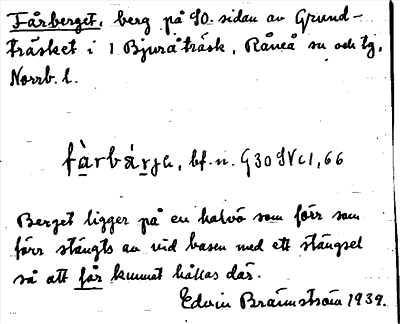 Fårberget, berg på SO. sidan av Grund-
träsket i 1 Bjuråträsk, Råneå sn och tg,
Norrb. l.
fàrbárjə, bf. n. G30 SV c1, 66
Berget ligger på en halvö som förr som
förr stängts av vid basen med ett stängsel
så att får kunnat hållas där.
Edvin Brännström 1939.